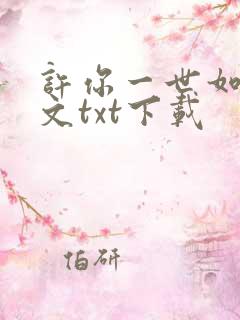 許你一世如
文txt下載
伯研